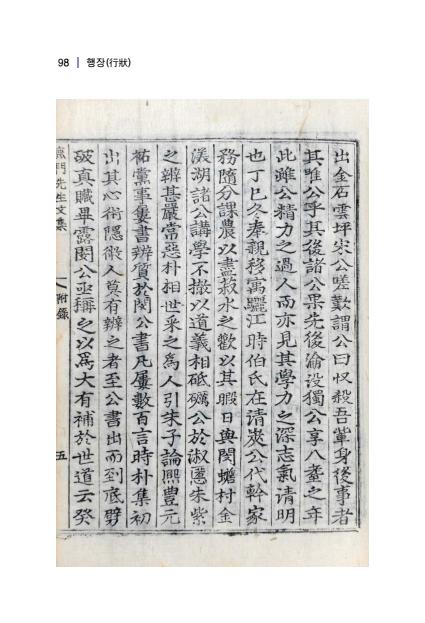 98 | 행장(行狀)
出金石雲坪尖公嗟歎謂公曰收殺吾輩身後事者
其唯公乎其後諸公果先後淪没獨公享八耋之年
此雖公精力之過人而亦見其學力之深志氣清明
也丁巳冬奉親移寓驪江時伯氏在清𡙇公代幹家
務隨分課農以盡菽水之歡以其暇日與閔蟾村金
渼湖諸公講學不撤以道義相砥礪公於淑慝朱紫
之辨甚嚴常惡朴相世采之爲人引朱子論熙豊元
祐黨事屢書辨質於閔公書凡屢數百言時朴集初
出其心術隱微人莫有辨之者至公書出而到底劈
破真贓畢露閔公亟稱之以爲大有補於世道云癸
門先生文集
附錄
五